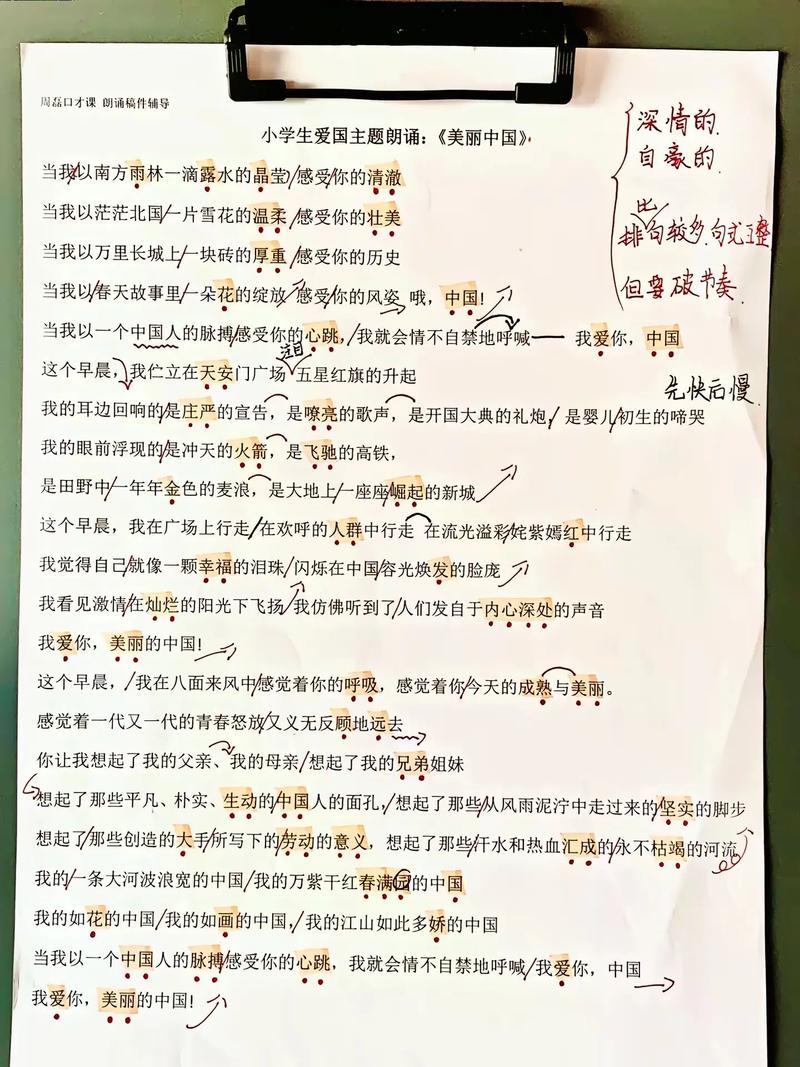 周磊口才课 朗诵稿件辅导
小学生爱国主题朗诵：《美丽中国》
深情的
自豪的
排比句较多，句式工整
但要破节奏
当我以南方雨林一滴露水的晶莹感受你的清澈
当我以茫茫北国一片雪花的温柔感受你的壮美
当我以万里长城上一块砖的厚重感受你的历史
当我以春天故事里一朵花的绽放感受你的风姿 哦，中国！
当我以一个中国人的脉搏感受你的心跳，我就会情不自禁地呼喊—— 我爱你，中国
注目
这个早晨，我伫立在天安门广场 五星红旗的升起
先快后慢
我的耳边回响的是庄严的宣告，是嘹亮的歌声，是开国大典的礼炮，是婴儿初生的啼哭
我的眼前浮现的是冲天的火箭，是飞驰的高铁，
是田野中一年年金色的麦浪，是大地上一座座崛起的新城
这个早晨，我在广场上行走 在欢呼的人群中行走 在流光溢彩姹紫嫣红中行走
我觉得自己就像一颗幸福的泪珠 闪烁在中国容光焕发的脸庞
我看见激情在灿烂的阳光下飞扬 我仿佛听到了人们发自于内心深处的声音
我爱你，美丽的中国！
这个早晨，我在八面来风中感觉着你的呼吸，感觉着你今天的成熟与美丽。
感觉着一代又一代的青春怒放又义无反顾地远去
你让我想起了我的父亲、我的母亲 想起了我的兄弟姐妹
想起了那些平凡、朴实、生动的中国人的面孔，想起了那些从风雨泥泞中走过来的坚实的脚步
想起了那些创造的大手所写下的劳动的意义，想起了那些汗水和热血汇成的永不枯竭的河流
我的一条大河波浪宽的中国 我的万紫千红春满园的中国
我的如花的中国 我的如画的中国，我的江山如此多娇的中国
当我以一个中国人的脉搏感受你的心跳，我就会情不自禁地呼喊 我爱你，中国
我爱你，美丽的中国！